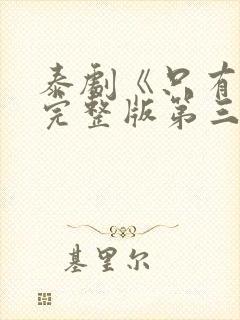 泰剧《只有
完整版第三
基里尔